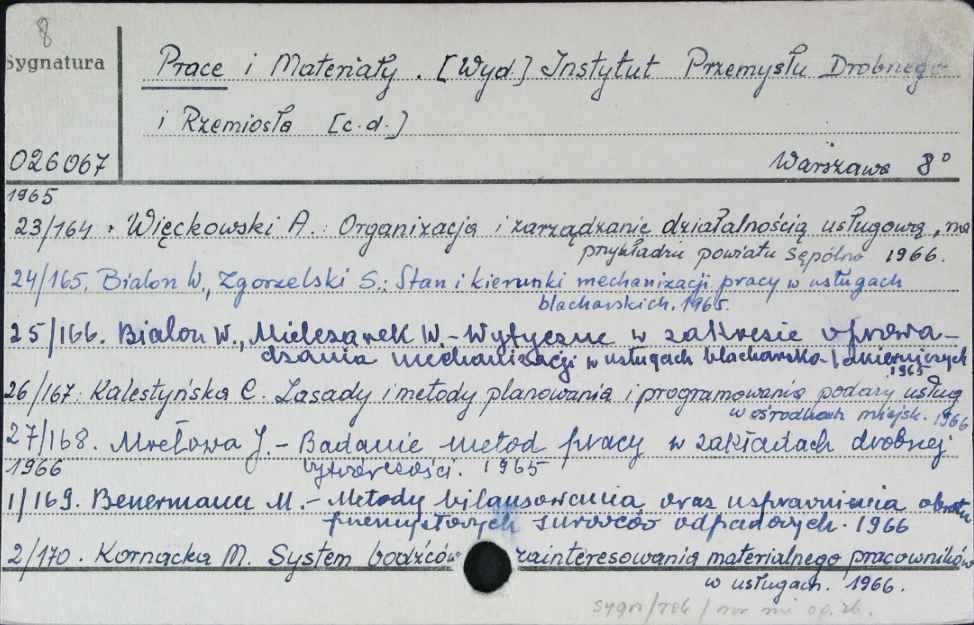 8
Sygnatura
Prace i Materiały. [Wyd] Instytut Przemysłu Drobnego
i Rzemiosła [c.d.]
026067
Warszawa 8°
1965
23/164. Więckowski A.: Organizacja i zarządzanie działalnością usługową, na
przykładzie powiatu Sępólno 1966.
24/165. Bialon W., Zgorzelski S.: Stan i kierunki mechanizacji pracy w usługach
blacharskich. 1965.
25/166. Bialon W., Mieleszarek W. - Wytyczne w zakresie wprowa-
dzania mechanizacji w usługach blacharsko-lakierniczych
1965
26/167. Kalestyńska C. Zasady i metody planowania i programowania podaży usług
w ośrodkach miejsk. 1966
27/168. Mrełowa J. - Badanie metod pracy w zakładach drobnej
1966
wytwórczości. 1965
1/169. Benermann M. - Metody bilansowania oraz usprawnienia obrotu
przemysłowych surowców odpadowych. 1966
2/170. Kornacka M. System bodźców zainteresowania materialnego pracowników
w usługach. 1966.